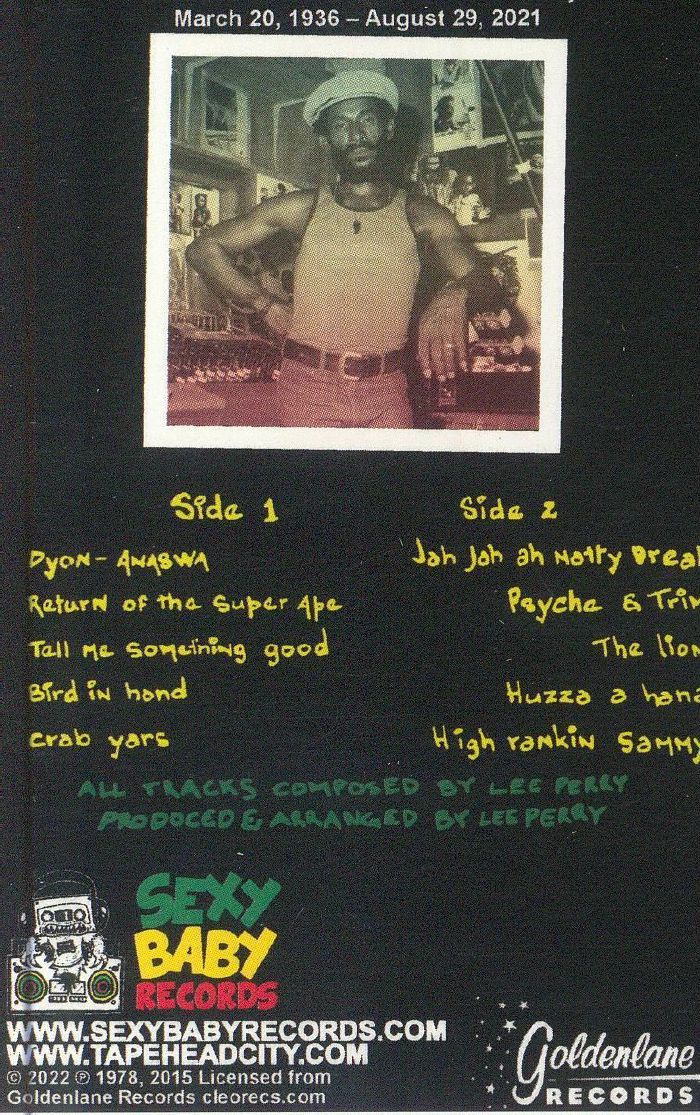 March 20, 1936 – August 29, 2021
Side 1
Dyon-Anaswa
Return of the Super Ape
Tell me something good
Bird in hand
Crab yars
Side 2
Jah Jah ah Natty Drea
Psyche & Trim
The lion
Huzza a hana
High rankin Sammy
ALL TRACKS COMPOSED BY LEE PERRY
PRODOCED & ARRANGED BY LEE PERRY
SEXY
BABY
RECORDS
WWW.SEXYBABYRECORDS.COM
WWW.TAPEHEADCITY.COM
© 2022 ℗ 1978, 2015 Licensed from
Goldenlane Records cleorecs.com
Goldenlane
RECORDS